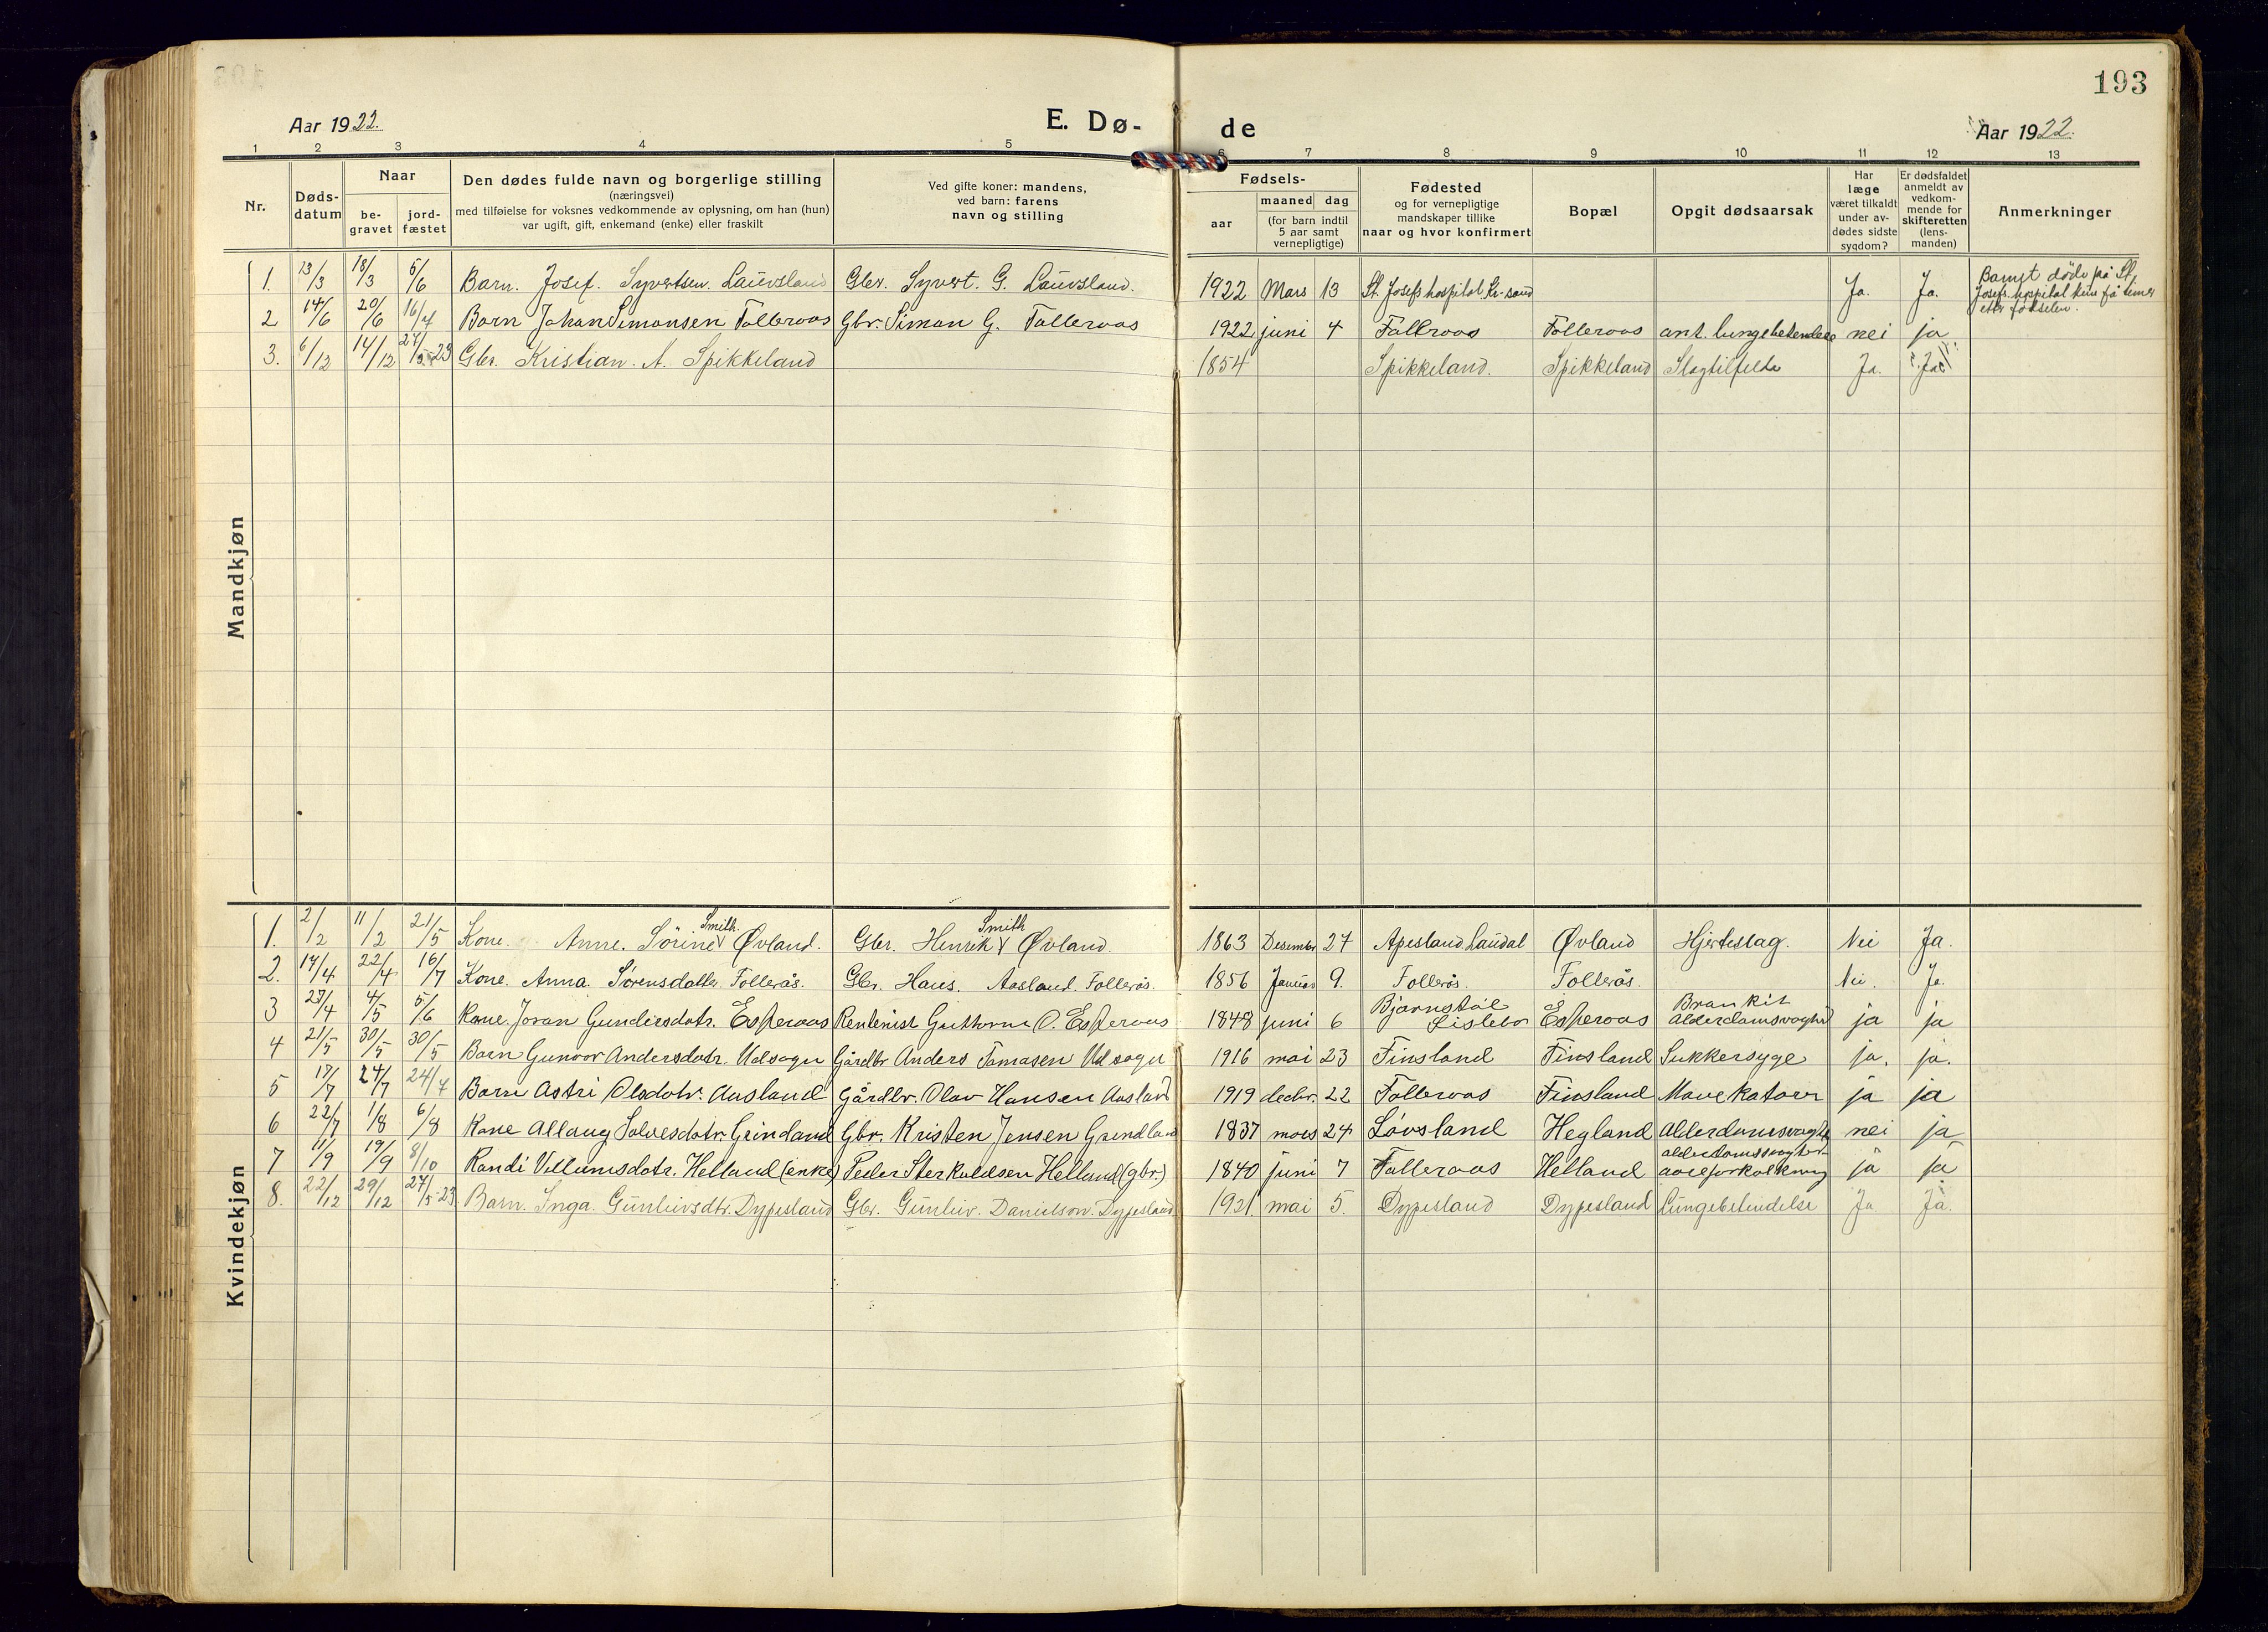 193
Aar 1922.
E. Dø-
de
Aar 1922.
1 2 3 4 5 6 7 8 9 10 11 12 13
Nr.
Døds-
datum
Naar
be-
gravet
jord-
fæstet
Den dødes fulde navn og borgerlige stilling
(næringsvei)
med tilføielse for voksnes vedkommende av oplysning, om han (hun)
var ugift, gift, enkemand (enke) eller fraskilt
Ved gifte koner: mandens,
ved barn: farens
navn og stilling
Fødsels-
aar
maaned dag
(for barn indtil
5 aar samt
vernepligtige)
Fødested
og for vernepligtige
mandskaper tillike
naar og hvor konfirmert
Bopæl
Opgit dødsaarsak
Har
læge
været tilkaldt
under av-
dødes sidste
sygdom?
Er dødsfaldet
anmeldt av
vedkom-
mende for
skifteretten
(lens-
manden)
Anmerkninger
Mandkjøn
1. 13/3 18/3 5/6 Barn. Josef. Syvertsen. Lauvsland Gbr. Syvert. G. Lauvsland. 1922 Mars 13 St. Josefs hospital. Kr-sand Ja. Ja. Barnet døde på St.
Josefs. hospital kun få timer
efter fødselen.
2 14/6 20/6 16/4 Barn Johan Simonsen Folleraas Gbr. Simon G. Folleraas 1922 juni 4 Folleraas Folleraas ant. lungebetendelse nei ja.
3. 6/12 14/12 27/5-23 Gbr. Kristian. A. Spikkeland 1854 Spikkeland. Spikkeland Slagtilfelde Ja. Ja
Kvindekjøn
1. 2/2 11/2 21/5 Kone. Anne. Sørine Smith Øvland. Gbr. Henrik Smith Øvland. 1863 Desember 27 Apesland, Laudal Øvland Hjerteslag. Nei Ja.
2. 14/4 22/4 16/7 Kone. Anna. Sørensdatter Follerås. Gbr. Hans. Aasland. Follerås. 1856 Januar 9. Follerås. Follerås. Nei. Ja.
3 27/4 4/5 5/6 Kone. Joran Gundersdatr. Esperaas Rentenist Guttorm O. Esperaas 1848 juni 6 Bjørnstøl
Lislebø Esperaas Brankit
Alderdomsvaghed ja ja
4 21/5 30/5 30/5 Barn Gunvor Andersdotr. Udsogn Gårdbr Anders Tomasen Udsogn 1916 mai 23 Finsland Finsland Sukkersyge ja. ja.
5 17/7 24/7 24/7 Barn Astri Olsdotr. Aasland Gårdbr. Olav Hansen Aasland 1919 decbr. 22 Folleraas Finsland Mavekatarr ja ja
6 22/7 1/8 6/8 Kone Allaug Salvesdotr. Grindland Gbr. Kristen Jensen Grindland 1837 mars 24 Løvsland Hegland Alderdomsvaghed nei ja
7 11/9 19/9 8/10 Randi Villumsdotr. Helland (enke) Peder Sterkuldsen Helland (gbr.) 1840 juni 7 Folleraas Helland alderdomssvaghed
aareforkalkning ja ja
8. 22/12 29/12 27/5-23 Barn. Inga. Gunleivsdtr. Dypesland Gbr. Gunleiv. Danielson. Dypesland 1921 mai 5. Dypesland Dypesland Lungebetendelse Ja Ja.